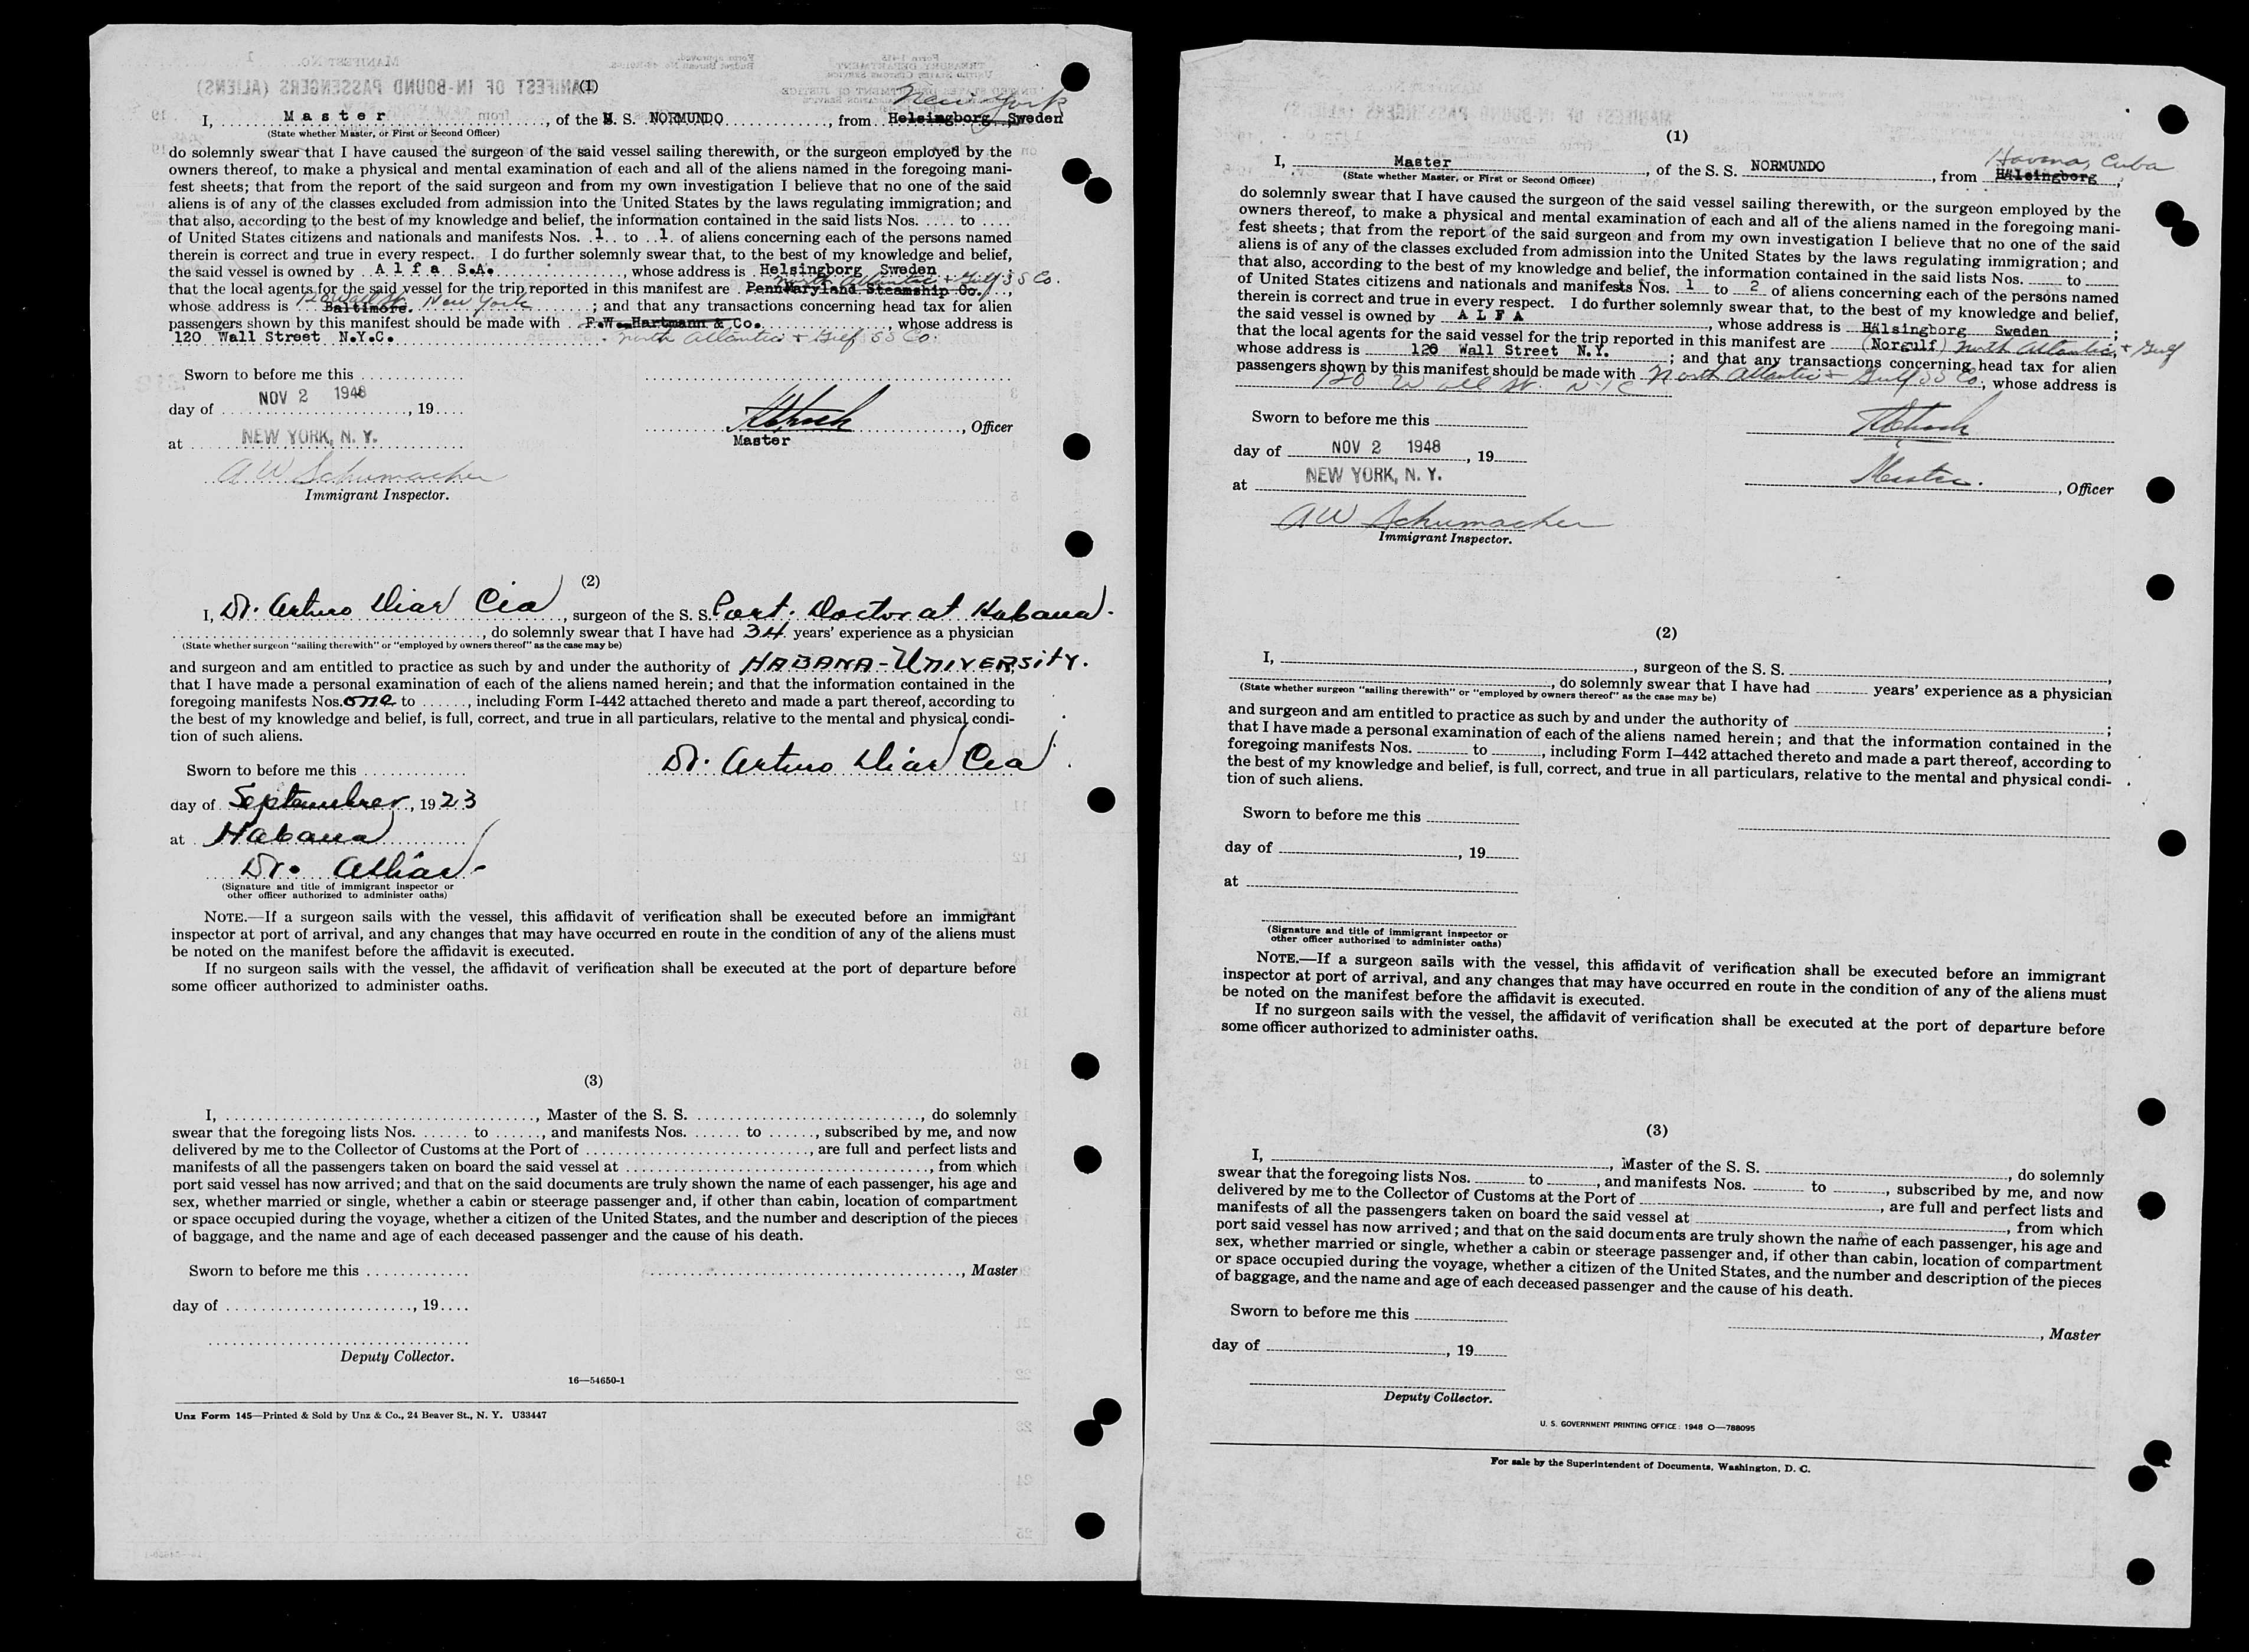 (1)
New York
I, Master, of the M. S. NORMUNDO, from Helsingborg Sweden
(State whether Master, or First or Second Officer)
do solemnly swear that I have caused the surgeon of the said vessel sailing therewith, or the surgeon employed by the
owners thereof, to make a physical and mental examination of each and all of the aliens named in the foregoing mani-
fest sheets; that from the report of the said surgeon and from my own investigation I believe that no one of the said
aliens is of any of the classes excluded from admission into the United States by the laws regulating immigration; and
that also, according to the best of my knowledge and belief, the information contained in the said lists Nos. .... to ....
of United States citizens and nationals and manifests Nos. 1 to 1 of aliens concerning each of the persons named
therein is correct and true in every respect. I do further solemnly swear that, to the best of my knowledge and belief,
the said vessel is owned by Alfa S.A., whose address is Helsingborg Sweden
North Atlantic + Gulf S S Co.
that the local agents for the said vessel for the trip reported in this manifest are PennMaryland Steamship Co.,
120 Wall St. New York
whose address is Baltimore. ; and that any transactions concerning head tax for alien
passengers shown by this manifest should be made with F.W. Hartmann & Co., whose address is
120 Wall Street N.Y.C. North Atlantic + Gulf S S Co.
Sworn to before me this
NOV 2 1948
day of , 19....
, Officer
Master
at NEW YORK, N. Y.
A W Schumacher
Immigrant Inspector.
(2)
I, Dr. Arturo Diaz Cia, surgeon of the S. S. Port. Doctor at Habana.
, do solemnly swear that I have had 34 years' experience as a physician
(State whether surgeon "sailing therewith" or "employed by owners thereof" as the case may be)
and surgeon and am entitled to practice as such by and under the authority of HABANA-UNIVERSITY.
that I have made a personal examination of each of the aliens named herein; and that the information contained in the
foregoing manifests Nos. one to ......, including Form I-442 attached thereto and made a part thereof, according to
the best of my knowledge and belief, is full, correct, and true in all particulars, relative to the mental and physical condi-
tion of such aliens.
Dr. Arturo Diaz Cia
Sworn to before me this
day of September, 1923
at Habana
Dr.
(Signature and title of immigrant inspector or
other officer authorized to administer oaths)
NOTE.—If a surgeon sails with the vessel, this affidavit of verification shall be executed before an immigrant
inspector at port of arrival, and any changes that may have occurred en route in the condition of any of the aliens must
be noted on the manifest before the affidavit is executed.
If no surgeon sails with the vessel, the affidavit of verification shall be executed at the port of departure before
some officer authorized to administer oaths.
(3)
I, , Master of the S. S. , do solemnly
swear that the foregoing lists Nos. ...... to ......, and manifests Nos. ...... to ......, subscribed by me, and now
delivered by me to the Collector of Customs at the Port of , are full and perfect lists and
manifests of all the passengers taken on board the said vessel at , from which
port said vessel has now arrived; and that on the said documents are truly shown the name of each passenger, his age and
sex, whether married or single, whether a cabin or steerage passenger and, if other than cabin, location of compartment
or space occupied during the voyage, whether a citizen of the United States, and the number and description of the pieces
of baggage, and the name and age of each deceased passenger and the cause of his death.
Sworn to before me this
, Master
day of , 19....
Deputy Collector.
16—54650-1
Unz Form 145—Printed & Sold by Unz & Co., 24 Beaver St., N. Y. U33447
(1)
Havana, Cuba
I, Master, of the S. S. NORMUNDO, from Hälsingborg,
(State whether Master, or First or Second Officer)
do solemnly swear that I have caused the surgeon of the said vessel sailing therewith, or the surgeon employed by the
owners thereof, to make a physical and mental examination of each and all of the aliens named in the foregoing mani-
fest sheets; that from the report of the said surgeon and from my own investigation I believe that no one of the said
aliens is of any of the classes excluded from admission into the United States by the laws regulating immigration; and
that also, according to the best of my knowledge and belief, the information contained in the said lists Nos. to
of United States citizens and nationals and manifests Nos. 1 to 2 of aliens concerning each of the persons named
therein is correct and true in every respect. I do further solemnly swear that, to the best of my knowledge and belief,
the said vessel is owned by ALFA, whose address is Hälsingborg Sweden;
that the local agents for the said vessel for the trip reported in this manifest are (Norgulf) North Atlantic + Gulf
whose address is 120 Wall Street N.Y. ; and that any transactions concerning head tax for alien
passengers shown by this manifest should be made with North Atlantic + Gulf S S Co., whose address is
120 Wall St. N Y C
Sworn to before me this
day of NOV 2 1948, 19
at NEW YORK, N. Y.
Master. , Officer
A W Schumacher
Immigrant Inspector.
(2)
I, , surgeon of the S. S. ,
, do solemnly swear that I have had years' experience as a physician
(State whether surgeon "sailing therewith" or "employed by owners thereof" as the case may be)
and surgeon and am entitled to practice as such by and under the authority of ;
that I have made a personal examination of each of the aliens named herein; and that the information contained in the
foregoing manifests Nos. to , including Form I-442 attached thereto and made a part thereof, according to
the best of my knowledge and belief, is full, correct, and true in all particulars, relative to the mental and physical condi-
tion of such aliens.
Sworn to before me this
day of , 19
at
(Signature and title of immigrant inspector or
other officer authorized to administer oaths)
NOTE.—If a surgeon sails with the vessel, this affidavit of verification shall be executed before an immigrant
inspector at port of arrival, and any changes that may have occurred en route in the condition of any of the aliens must
be noted on the manifest before the affidavit is executed.
If no surgeon sails with the vessel, the affidavit of verification shall be executed at the port of departure before
some officer authorized to administer oaths.
(3)
I, , Master of the S. S. , do solemnly
swear that the foregoing lists Nos. to , and manifests Nos. to , subscribed by me, and now
delivered by me to the Collector of Customs at the Port of , are full and perfect lists and
manifests of all the passengers taken on board the said vessel at , from which
port said vessel has now arrived; and that on the said documents are truly shown the name of each passenger, his age and
sex, whether married or single, whether a cabin or steerage passenger and, if other than cabin, location of compartment
or space occupied during the voyage, whether a citizen of the United States, and the number and description of the pieces
of baggage, and the name and age of each deceased passenger and the cause of his death.
Sworn to before me this
, Master
day of , 19
Deputy Collector.
U. S. GOVERNMENT PRINTING OFFICE: 1948 O—788095
For sale by the Superintendent of Documents, Washington, D. C.